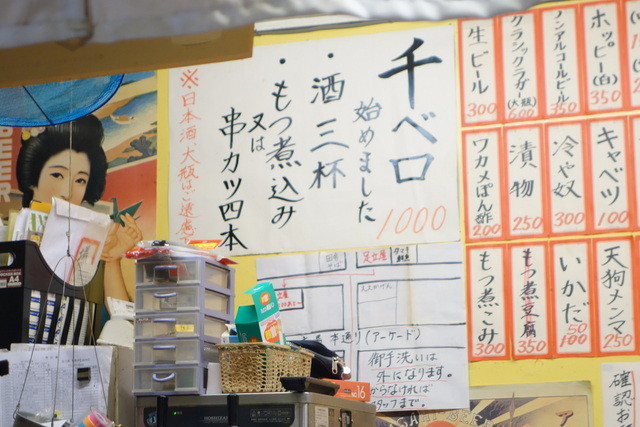 千ベロ
始めました
1000
・酒三杯
・もつ煮込み
又は
串カツ四本
※日本酒大瓶はご遠慮
ホッピー(白)
350
ノンアルコールビール
350
クラシックラガー(大瓶)
600
生ビール
300
キャベツ
100
冷や奴
300
漬物
250
ワカメぽん酢
200
天狗メンマ
250
いかだ
50
100
もつ煮豆腐
350
もつ煮こみ
300
本通り(アーケード)
御手洗いは
外になります。
からなければ
タッフまで。
No.16
A4
確認お